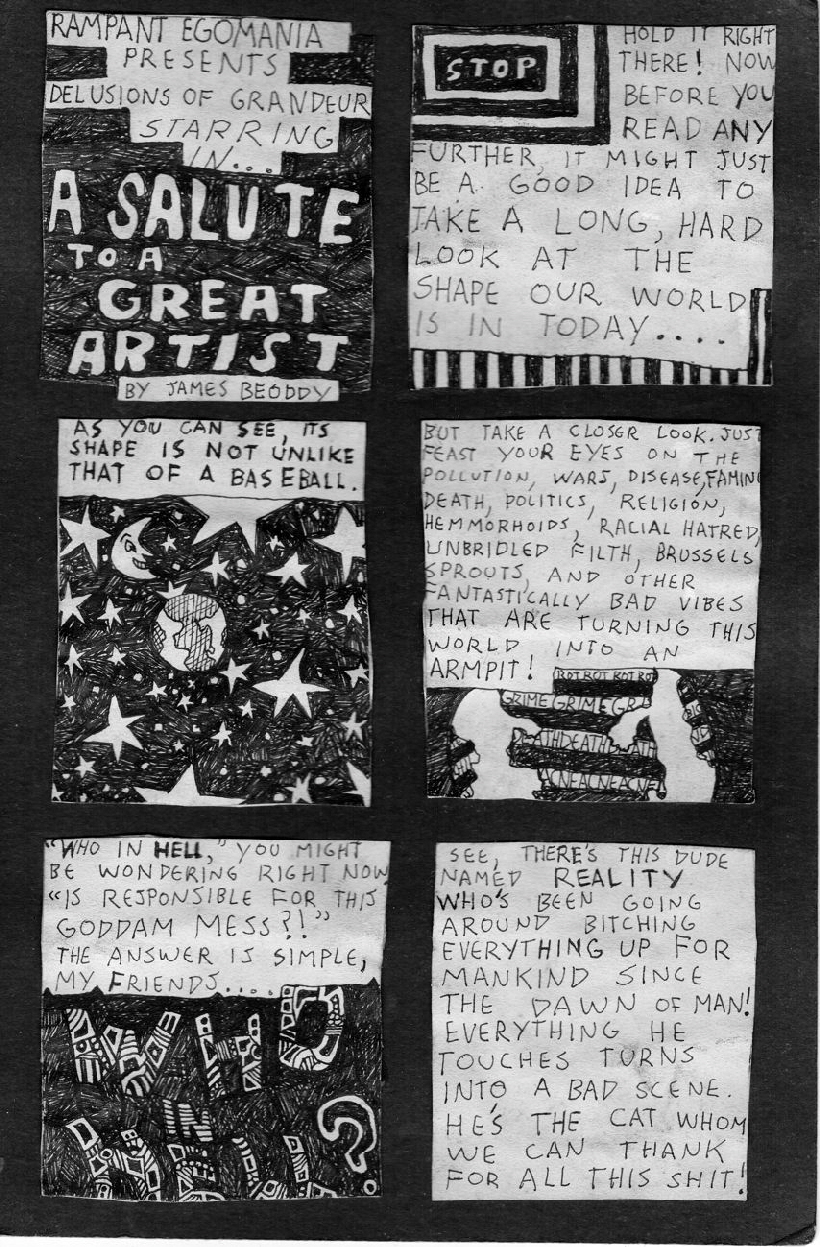 RAMPANT EGOMANIA
PRESENTS
DELUSIONS OF GRANDEUR
STARRING
IN...
A SALUTE
TO A
GREAT
ARTIST
BY JAMES BEODDY
STOP
HOLD IT RIGHT
THERE! NOW
BEFORE YOU
READ ANY
FURTHER, IT MIGHT JUST
BE A GOOD IDEA TO
TAKE A LONG, HARD
LOOK AT THE
SHAPE OUR WORLD
IS IN TODAY....
AS YOU CAN SEE, ITS
SHAPE IS NOT UNLIKE
THAT OF A BASEBALL.
BUT TAKE A CLOSER LOOK. JUST
FEAST YOUR EYES ON THE
POLLUTION, WARS, DISEASE, FAMIN
DEATH, POLITICS, RELIGION,
HEMMORHOIDS, RACIAL HATRED,
UNBRIDLED FILTH, BRUSSELS
SPROUTS, AND OTHER
FANTASTICALLY BAD VIBES
THAT ARE TURNING THIS
WORLD INTO AN
ARMPIT!
ROT ROT ROT ROT
GRIME GRIME GR
ATHDEATH ATH
ACNEACNEACNE
"WHO IN HELL," YOU MIGHT
BE WONDERING RIGHT NOW,
"IS RESPONSIBLE FOR THIS
GODDAM MESS?!"
THE ANSWER IS SIMPLE,
MY FRIENDS....
WHO
IN
HELL
?
SEE, THERE'S THIS DUDE
NAMED REALITY
WHO'S BEEN GOING
AROUND BITCHING
EVERYTHING UP FOR
MANKIND SINCE
THE DAWN OF MAN!
EVERYTHING HE
TOUCHES TURNS
INTO A BAD SCENE.
HE'S THE CAT WHOM
WE CAN THANK
FOR ALL THIS SHIT!